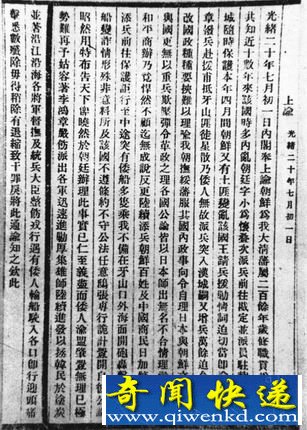 上諭 光緒二十年七月初一日
光緒二十年七月初一日內閣奉上諭朝鮮爲我大清藩屬二百餘年歲修職貢
共知近十數年來該國時多內亂朝廷字小爲懷疊次派兵前往戡定並派員駐紮
城隨時保護本年四月間朝鮮又有土匪變亂該國王請兵援勦情詞迫切當
章撥兵赴援甫抵牙山匪徒星散乃倭人無故派兵突入漢城嗣又增兵萬餘迫
改國政種種要挾難以理喻我朝撫綏藩服其國內政事向令自理日本與朝鮮
與國更無以重兵欺壓彊令革政之理各國公論皆以日本師出無名不合情理
和平商辦乃竟悍然不顧迄無成說反更陸續添兵朝鮮百姓及中國商民日加
添兵前往保護詎行至中途突有倭船多隻乘我不備在牙山口外海面開砲轟
船變詐情形殊非意料所及該國不遵條約不守公法任意鴟張專行詭計釁開自彼
昭然用特布告天下俾曉然於朝廷辦理此事實已仁至義盡而倭人渝盟肇釁無理已極
勢難再予姑容著李鴻章嚴飭派出各軍迅速進勦厚集雄師陸續進發以拯韓民於塗炭
並著沿江沿海各將軍督撫及統兵大臣整飭戎行遇有倭人輪船駛入各口卽行迎頭痛
擊悉數殲除毋得稍有退縮致干罪戾將此通諭知之欽此
奇闻快递
www.qiwenkd.com